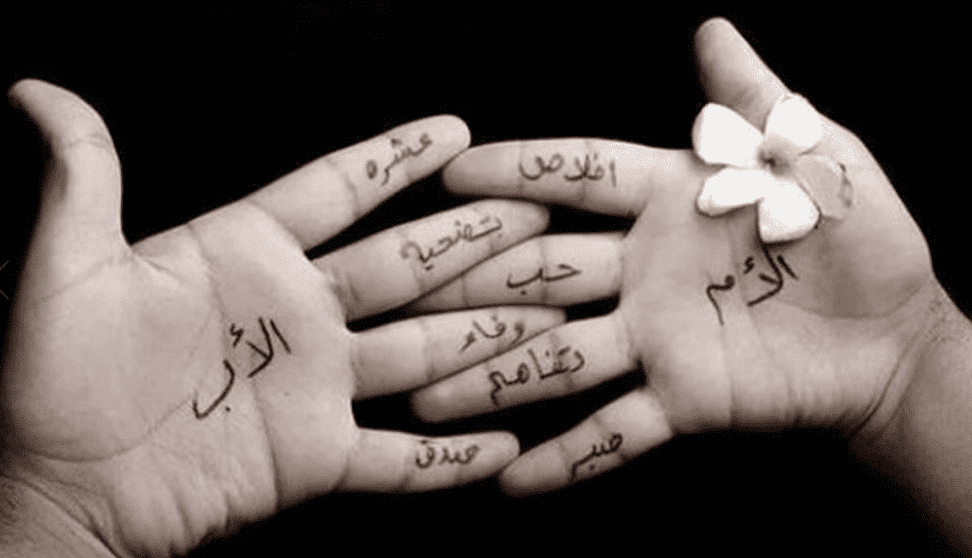 الأم
اخلاص
حب
تفاهم
صبر
الأب
عشره
تضحية
وفاء
صدق